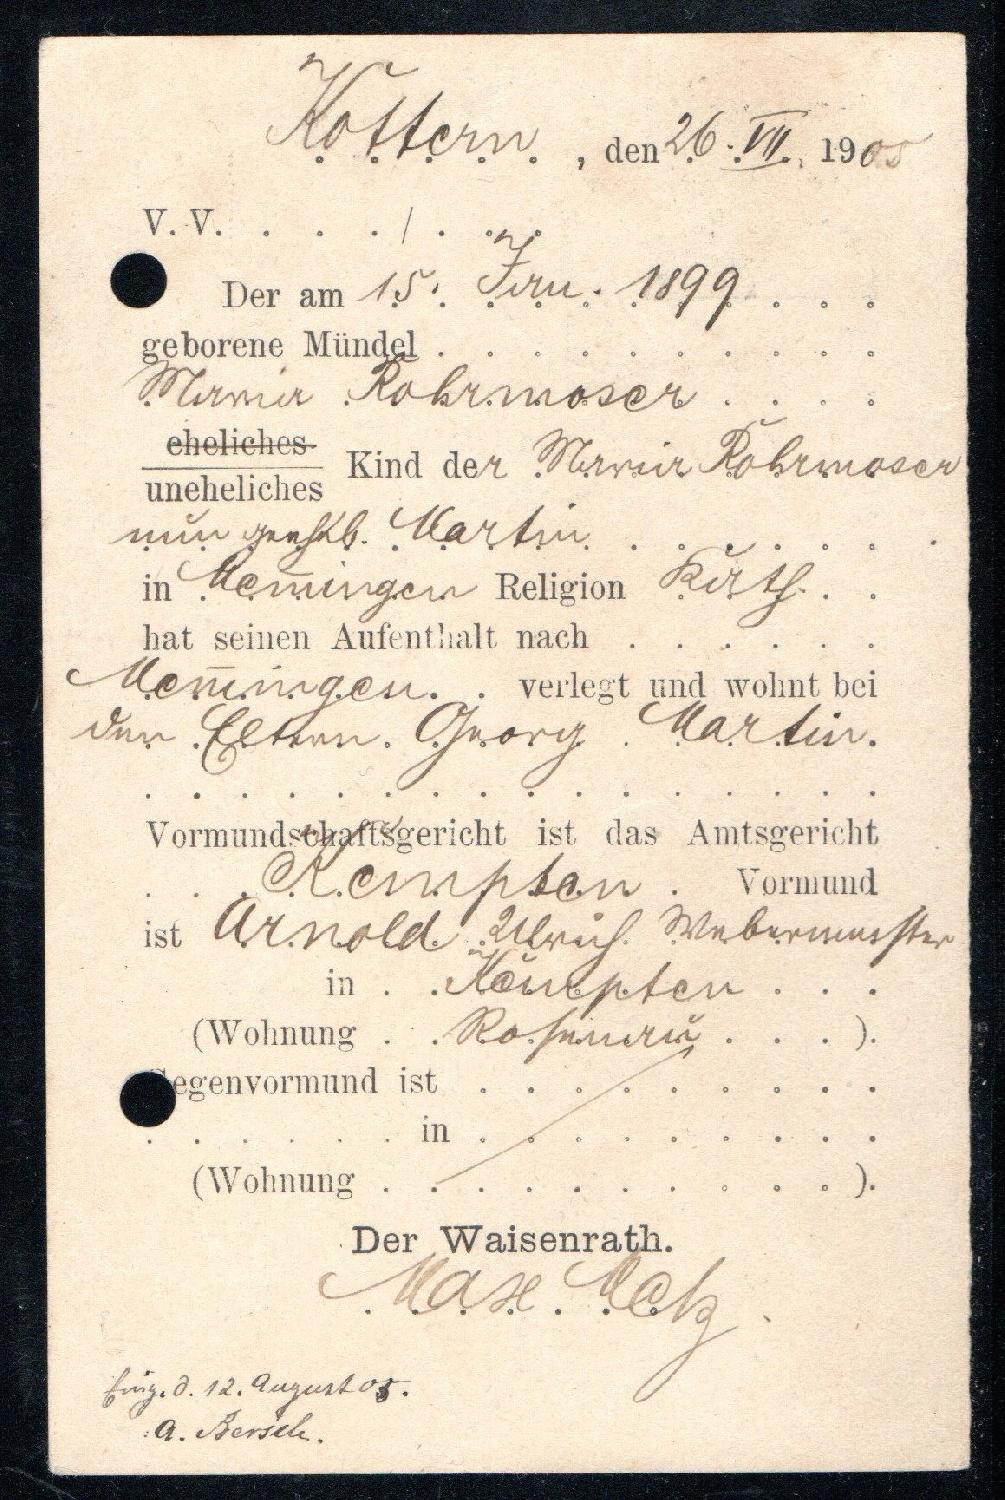 Kottern, den 26. VII. 1905
V. V. . . . / . . .
Der am 15. Jan. 1899 . . .
geborene Mündel . . . . . . . . .
Maria Rohrmoser . . . .
eheliches
uneheliches Kind der Maria Rohrmoser
nun Martin . . . . . . .
in Memingen Religion Kath. . .
hat seinen Aufenthalt nach . . . . . .
Memingen. . verlegt und wohnt bei
den Eltern. Georg Martin.
. . . . . . . . . . . . . . .
Vormundschaftsgericht ist das Amtsgericht
. . . Kempten . Vormund
ist Arnold Ulrich. Webermeister
in . . Kempten . . .
(Wohnung . . Rosenau . . . .).
Gegenvormund ist . . . . . . . . .
. . . . . . in . . . . . . . . .
(Wohnung . . . . . . . . . . .).
Der Waisenrath.
Max Metz.
Eing. d. 12. August 05.
A.